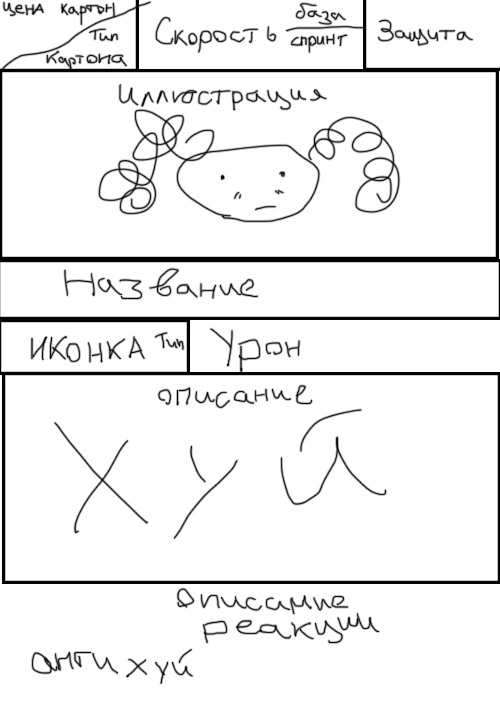 цена картон
Тип
Картона
Скорость база
спринт
Защита
Иллюстрация
Название
ИКОНКА Тип
Урон
описание
хуй
Описание
реакции
анти хуй